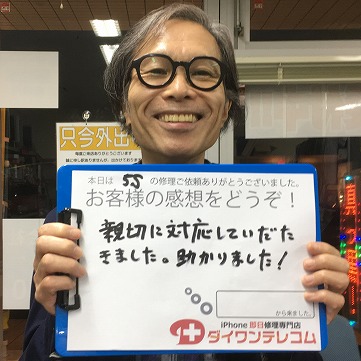 只今外出
毎度ご来店ありがとうございます
本日は 5S の修理ご依頼ありがとうございました。
お客様の感想をどうぞ！
親切に対応していだた
きました。助かりました！
から来ました。
iPhone 即日修理専門店
ダイワンテレコム